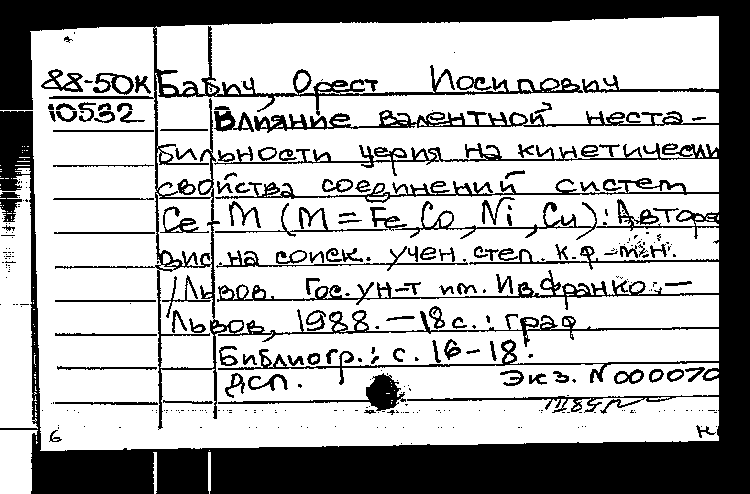 88-50К Бабич, Орест Иосипович
10532 Влияние валентной неста-
бильности церия на кинетически
свойства соединений систем
Ce-M (M = Fe, Co, Ni, Cu): Авторе
дис. на соиск. учен. степ. к.ф.-м.н.
/Львов. Гос. ун-т им. Ив. Франко. —
Львов, 1988. — 18 с.: граф.
Библиогр.: с. 16-18.
ДСП. Экз. N 000070
6